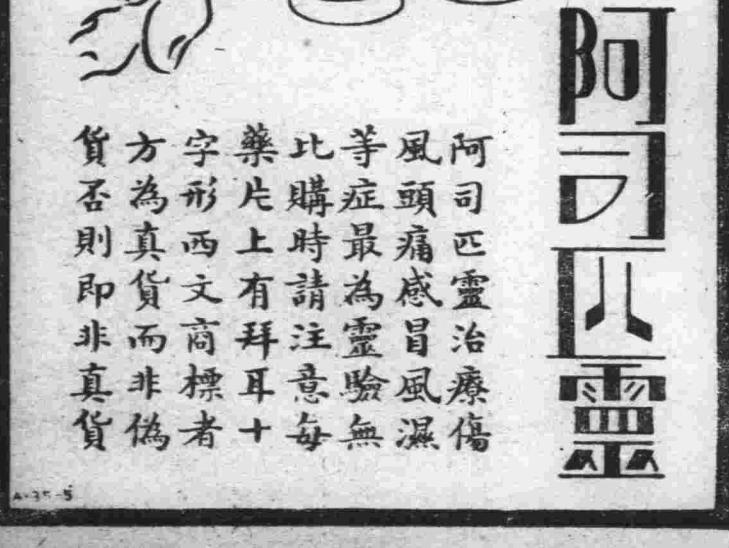 阿司匹靈
阿司匹靈治療傷
風頭痛感冒風濕
等症最為靈驗無
比購時請注意每
藥片上有拜耳十
字形西文商標者
方為真貨而非偽
貨否則即非真貨
A-35-5